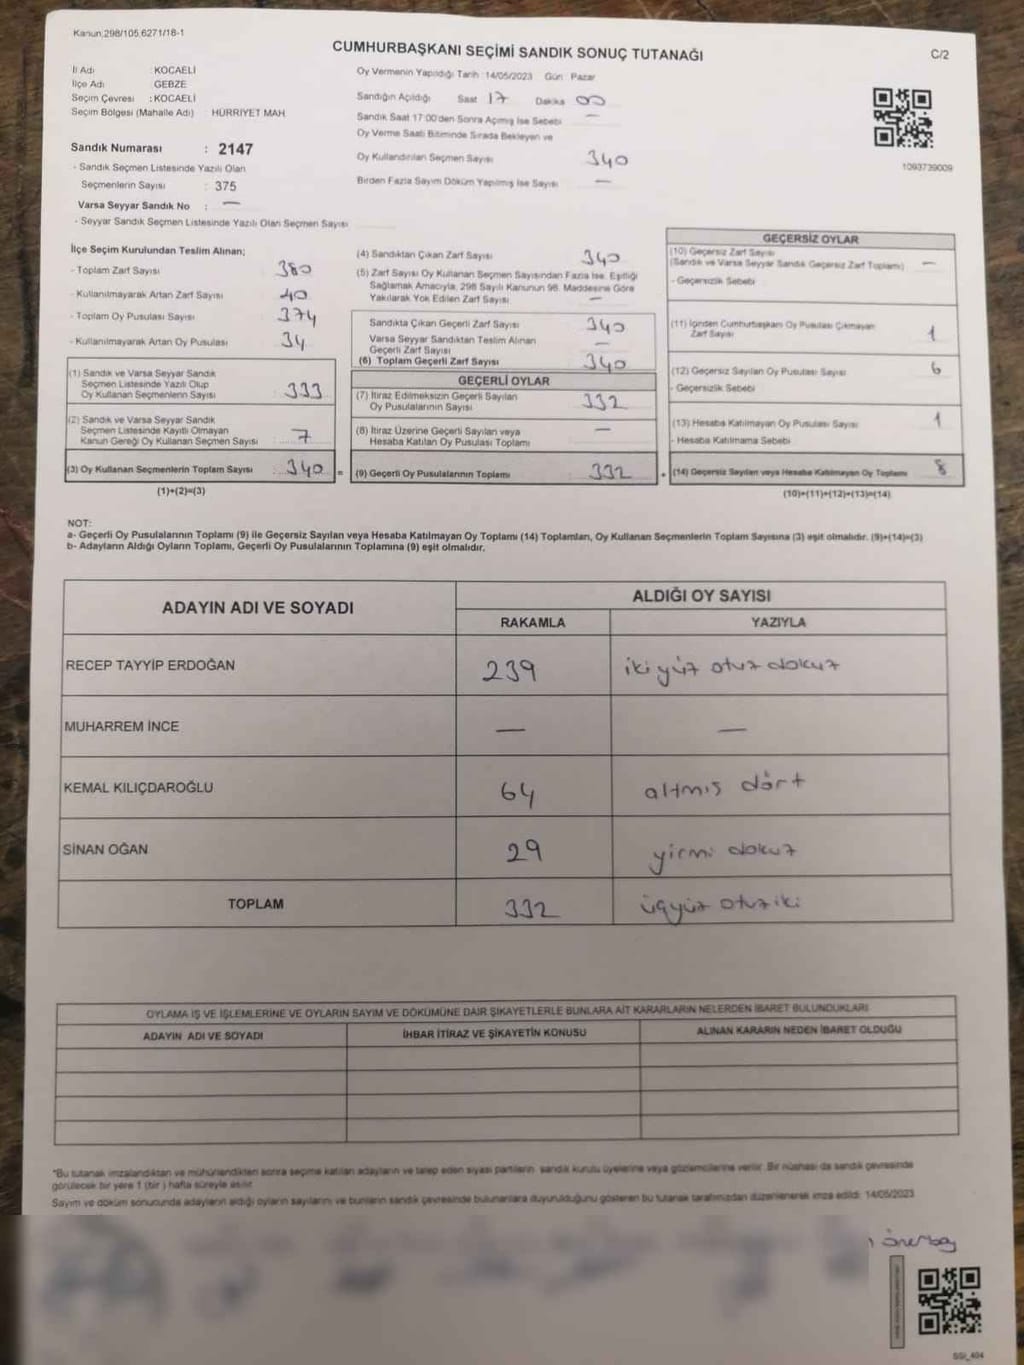 Kanun.298/105.6271/18-1
CUMHURBAŞKANI SEÇİMİ SANDIK SONUÇ TUTANAĞI
C/2
İl Adı : KOCAELİ
İlçe Adı GEBZE
Seçim Çevresi : KOCAELİ
Seçim Bölgesi (Mahalle Adı) : HÜRRİYET MAH
Sandık Numarası : 2147
- Sandık Seçmen Listesinde Yazılı Olan
Seçmenlerin Sayısı : 375
Varsa Seyyar Sandık No : —
- Seyyar Sandık Seçmen Listesinde Yazılı Olan Seçmen Sayısı
Oy Vermenin Yapıldığı Tarih 14/05/2023 Gün Pazar
Sandığın Açıldığı Saat 17 Dakika 00
Sandık Saat 17:00'den Sonra Açılmış İse Sebebi —
Oy Verme Saati Bitiminde Sırada Bekleyen ve
Oy Kullandırılan Seçmen Sayısı 340
Birden Fazla Sayım Döküm Yapılmış İse Sayısı —
1093739009
İlçe Seçim Kurulundan Teslim Alınan;
- Toplam Zarf Sayısı 380
- Kullanılmayarak Artan Zarf Sayısı 40
- Toplam Oy Pusulası Sayısı 374
- Kullanılmayarak Artan Oy Pusulası 34
(1) Sandık ve Varsa Seyyar Sandık
Seçmen Listesinde Yazılı Olup
Oy Kullanan Seçmenlerin Sayısı 333
(2) Sandık ve Varsa Seyyar Sandık
Seçmen Listesinde Kayıtlı Olmayan
Kanun Gereği Oy Kullanan Seçmen Sayısı 7
(3) Oy Kullanan Seçmenlerin Toplam Sayısı 340 =
(1)+(2)=(3)
(4) Sandıktan Çıkan Zarf Sayısı 340
(5) Zarf Sayısı Oy Kullanan Seçmen Sayısından Fazla İse, Eşitliği
Sağlamak Amacıyla, 298 Sayılı Kanunun 98. Maddesine Göre
Yakılarak Yok Edilen Zarf Sayısı —
Sandıkta Çıkan Geçerli Zarf Sayısı 340
Varsa Seyyar Sandıktan Teslim Alınan
Geçerli Zarf Sayısı —
(6) Toplam Geçerli Zarf Sayısı 340
GEÇERLİ OYLAR
(7) İtiraz Edilmeksizin Geçerli Sayılan
Oy Pusulalarının Sayısı 332
(8) İtiraz Üzerine Geçerli Sayılan veya
Hesaba Katılan Oy Pusulası Toplamı —
(9) Geçerli Oy Pusulalarının Toplamı 332 +
GEÇERSİZ OYLAR
(10) Geçersiz Zarf Sayısı
(Sandık ve Varsa Seyyar Sandık Geçersiz Zarf Toplamı) —
- Geçersizlik Sebebi
(11) İçinden Cumhurbaşkanı Oy Pusulası Çıkmayan
Zarf Sayısı 1
(12) Geçersiz Sayılan Oy Pusulası Sayısı 6
- Geçersizlik Sebebi
(13) Hesaba Katılmayan Oy Pusulası Sayısı 1
- Hesaba Katılmama Sebebi
(14) Geçersiz Sayılan veya Hesaba Katılmayan Oy Toplamı 8
(10)+(11)+(12)+(13)=(14)
NOT:
a- Geçerli Oy Pusulalarının Toplamı (9) ile Geçersiz Sayılan veya Hesaba Katılmayan Oy Toplamı (14) Toplamları, Oy Kullanan Seçmenlerin Toplam Sayısına (3) eşit olmalıdır. (9)+(14)=(3)
b- Adayların Aldığı Oyların Toplamı, Geçerli Oy Pusulalarının Toplamına (9) eşit olmalıdır.
ADAYIN ADI VE SOYADI
ALDIĞI OY SAYISI
RAKAMLA YAZIYLA
RECEP TAYYİP ERDOĞAN 239 ikiyüz otuz dokuz
MUHARREM İNCE — —
KEMAL KILIÇDAROĞLU 64 altmış dört
SİNAN OĞAN 29 yirmi dokuz
TOPLAM 332 üçyüz otuz iki
OYLAMA İŞ VE İŞLEMLERİNE VE OYLARIN SAYIM VE DÖKÜMÜNE DAİR ŞİKAYETLERLE BUNLARA AİT KARARLARIN NELERDEN İBARET BULUNDUKLARI
ADAYIN ADI VE SOYADI İHBAR İTİRAZ VE ŞİKAYETİN KONUSU ALINAN KARARIN NEDEN İBARET OLDUĞU
*Bu tutanak imzalandıktan ve mühürlendikten sonra seçime katılan adayların ve talep eden siyasi partilerin sandık kurulu üyelerine veya gözlemcilerine verilir. Bir nüshası da sandık çevresinde
görülecek bir yere 1 (bir) hafta süreyle asılır.
Sayım ve döküm sonucunda adayların aldığı oyların sayılarını ve bunların sandık çevresinde bulunanlara duyurulduğunu gösteren bu tutanak tarafımızdan düzenlenerek imza edildi. 14/05/2023
SGI_404